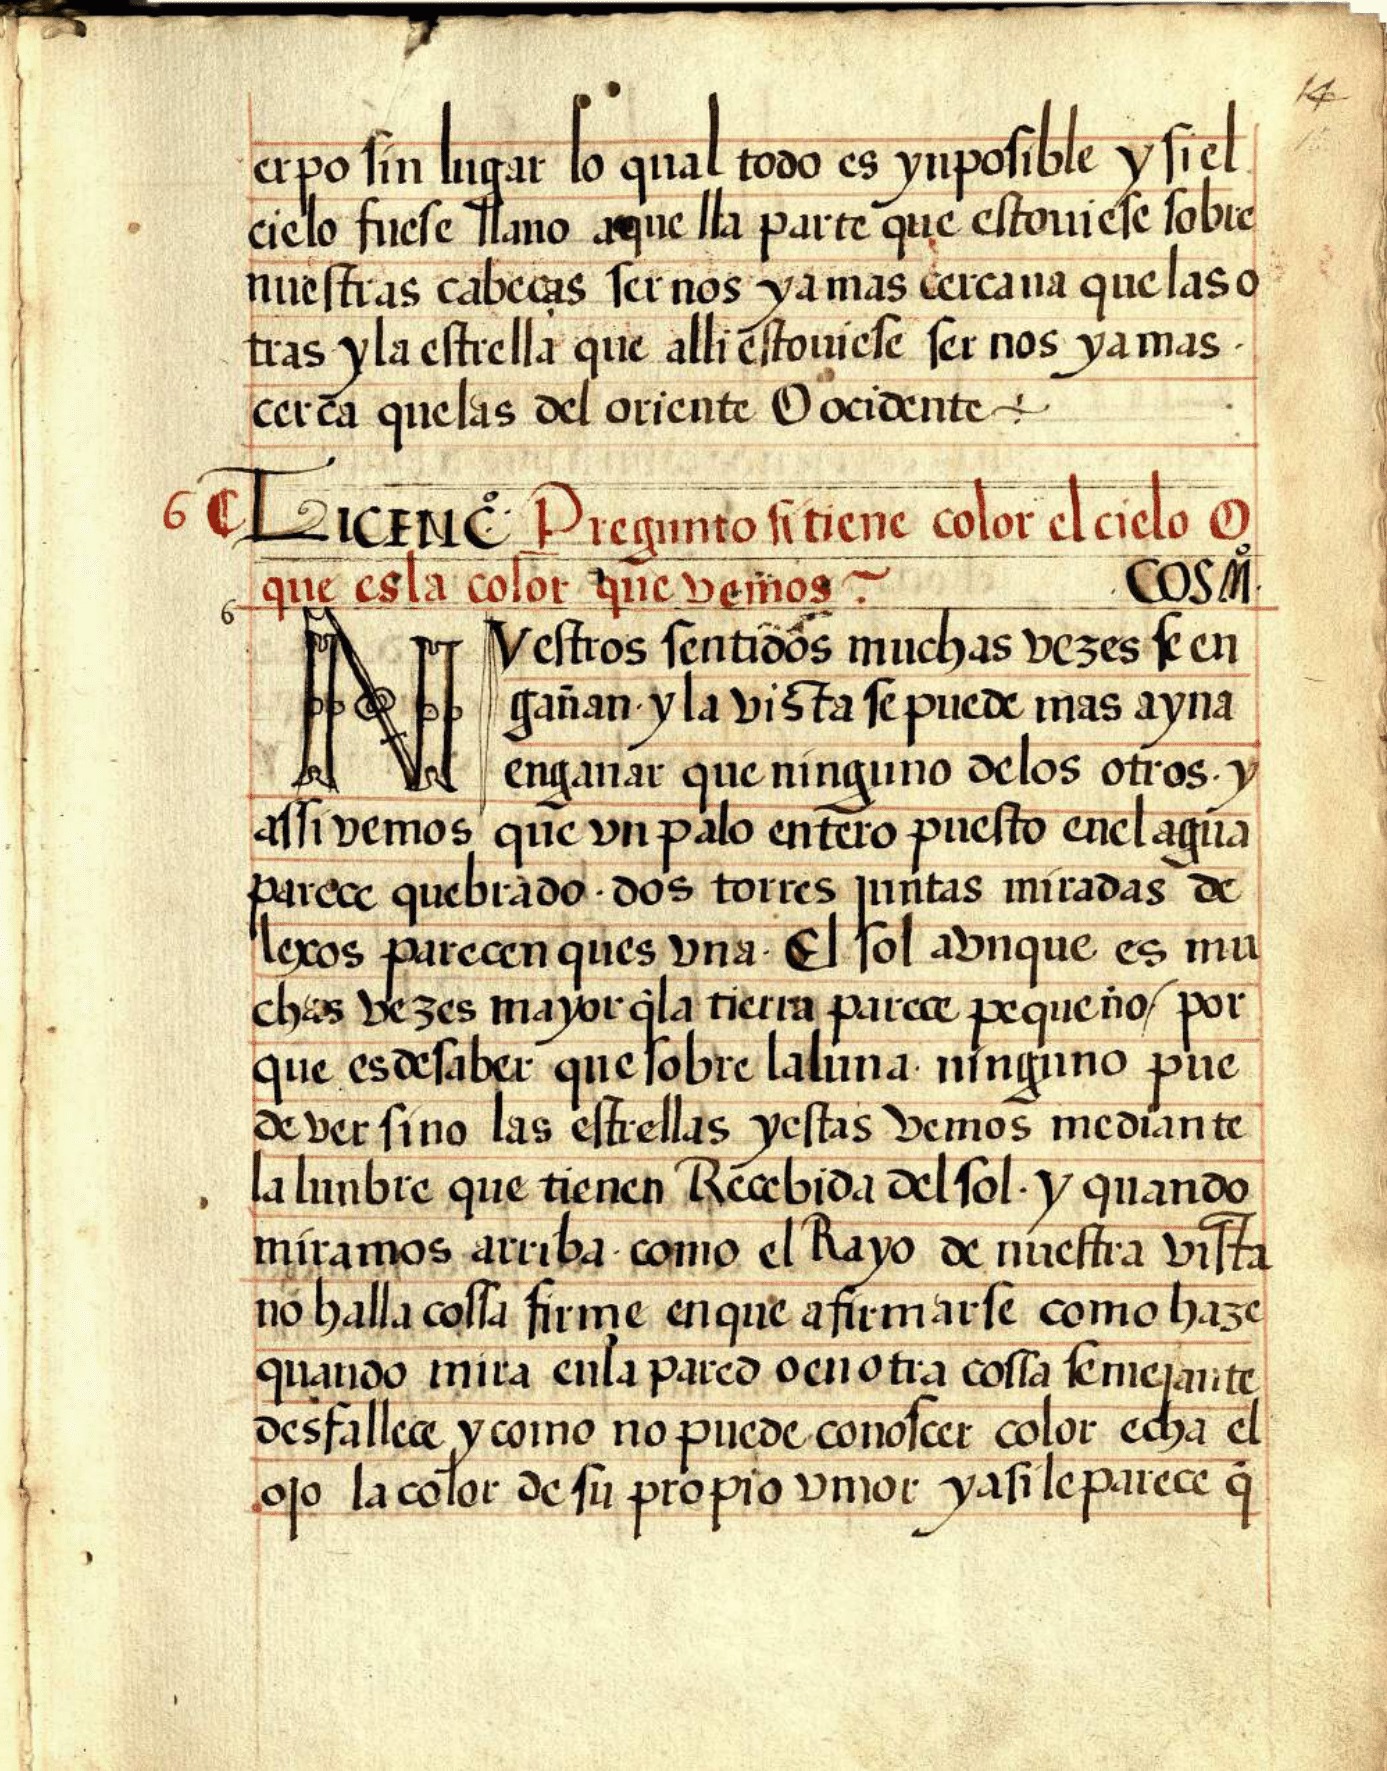 14
erpo sin lugar lo qual todo es ynposible y si el
cielo fuese llano aque lla parte que estouiese sobre
nuestras cabeças ser nos ya mas cercana que las o
tras y la estrella que alli estouiese ser nos ya mas ·
cerca que las del oriente O ocidente
6 ¶ LICENC.º Pregunto si tiene color el cielo O
que es la color que vemos COSM.º
6
NVestros sentidos muchas vezes se en
gañan · y la vista se puede mas ayna
enganar que ninguno de los otros · y
assi vemos que vn palo entero puesto enel agua
parece quebrado · dos torres juntas miradas de
lexos parecen ques vna · El sol avnque es mu
chas vezes mayor q̃ la tierra parece pequeño / por
que es de saber que sobre la luna · ninguno pue
de ver sino las estrellas y estas vemos mediante
la lunbre que tienen Recebida del sol · y quando
miramos arriba · como el Rayo de nuestra vista
no halla cossa firme en que afirmarse como haze
quando mira enla pared o en otra cossa semejante
desfallece y como no puede conoscer color echa el
ojo la color de su propio vmor y asi le parece q̃